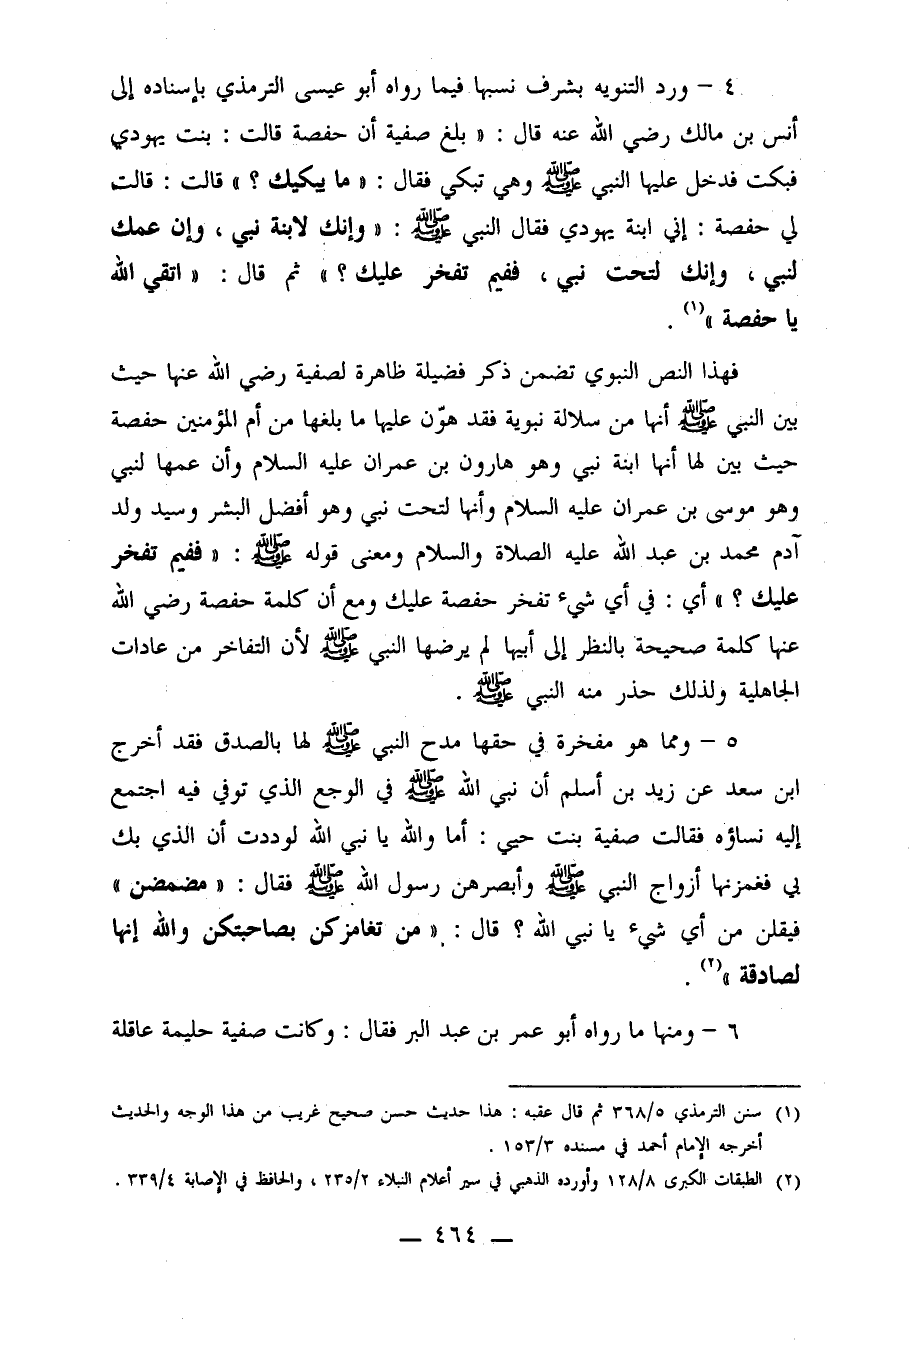 ٤ – ورد التنويه بشرف نسبها فيما رواه أبو عيسى الترمذي بإسناده إلى
أنس بن مالك رضي الله عنه قال : « بلغ صفية أن حفصة قالت : بنت يهودي
فبكت فدخل عليها النبي ﷺ وهي تبكي فقال : « ما يبكيك ؟ » قالت : قالت
لي حفصة : إني ابنة يهودي فقال النبي ﷺ : « وإنك لابنة نبي ، وإن عمك
لنبي ، وإنك لتحت نبي ، ففيم تفخر عليك ؟ » ثم قال : « اتقي الله
يا حفصة »(١) .
فهذا النص النبوي تضمن ذكر فضيلة ظاهرة لصفية رضي الله عنها حيث
بين النبي ﷺ أنها من سلالة نبوية فقد هوّن عليها ما بلغها من أم المؤمنين حفصة
حيث بين لها أنها ابنة نبي وهو هارون بن عمران عليه السلام وأن عمها لنبي
وهو موسى بن عمران عليه السلام وأنها لتحت نبي وهو أفضل البشر وسيد ولد
آدم محمد بن عبد الله عليه الصلاة والسلام ومعنى قوله ﷺ : « ففيم تفخر
عليك ؟ » أي : في أي شيء تفخر حفصة عليك ومع أن كلمة حفصة رضي الله
عنها كلمة صحيحة بالنظر إلى أبيها لم يرضها النبي ﷺ لأن التفاخر من عادات
الجاهلية ولذلك حذر منه النبي ﷺ .
٥ – ومما هو مفخرة في حقها مدح النبي ﷺ لها بالصدق فقد أخرج
ابن سعد عن زيد بن أسلم أن نبي الله ﷺ في الوجع الذي توفي فيه اجتمع
إليه نساؤه فقالت صفية بنت حيي : أما والله يا نبي الله لوددت أن الذي بك
بي فغمزنها أزواج النبي ﷺ وأبصرهن رسول الله ﷺ فقال : « مضمضن »
فيقلن من أي شيء يا نبي الله ؟ قال : « من تغامزكن بصاحبتكن والله إنها
لصادقة »(٢) .
٦ – ومنها ما رواه أبو عمر بن عبد البر فقال : وكانت صفية حليمة عاقلة
(١) سنن الترمذي ٣٦٨/٥ ثم قال عقبه : هذا حديث حسن صحيح غريب من هذا الوجه والحديث
أخرجه الإمام أحمد في مسنده ١٥٣/٣ .
(٢) الطبقات الكبرى ١٢٨/٨ وأورده الذهبي في سير أعلام النبلاء ٢٣٥/٢ ، والحافظ في الإصابة ٣٣٩/٤ .
— ٤٦٤ —